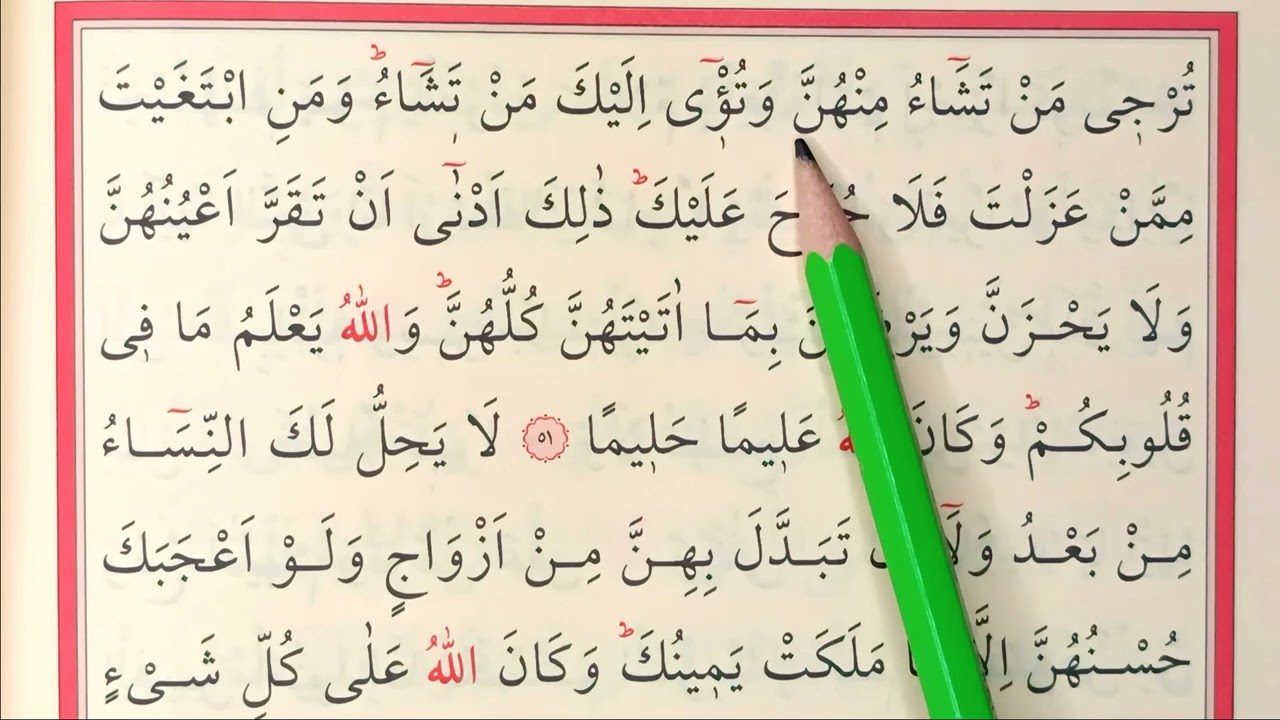 تُرْجٖى مَنْ تَشَٓاءُ مِنْهُنَّ وَتُـْٔوٖٓى اِلَيْكَ مَنْ تَشَٓاءُؕ وَمَنِ ابْتَغَيْتَ
مِمَّنْ عَزَلْتَ فَلَا عَلَيْكَؕ ذٰلِكَ اَدْنٰٓى اَنْ تَقَرَّ اَعْيُنُهُنَّ
وَلَا يَحْزَنَّ بِمَٓا اٰتَيْتَهُنَّ كُلُّهُنَّؕ وَاللّٰهُ يَعْلَمُ مَا فٖى
قُلُوبِكُمْؕ وَكَانَ عَلٖيمًا حَلٖيمًا ٥١ لَا يَحِلُّ لَكَ النِّسَٓاءُ
مِنْ بَعْدُ تَبَدَّلَ بِهِنَّ مِنْ اَزْوَاجٍ وَلَوْ اَعْجَبَكَ
حُسْنُهُنَّ مَلَكَتْ يَمٖينُكَؕ وَكَانَ اللّٰهُ عَلٰى كُلِّ شَىْءٍ